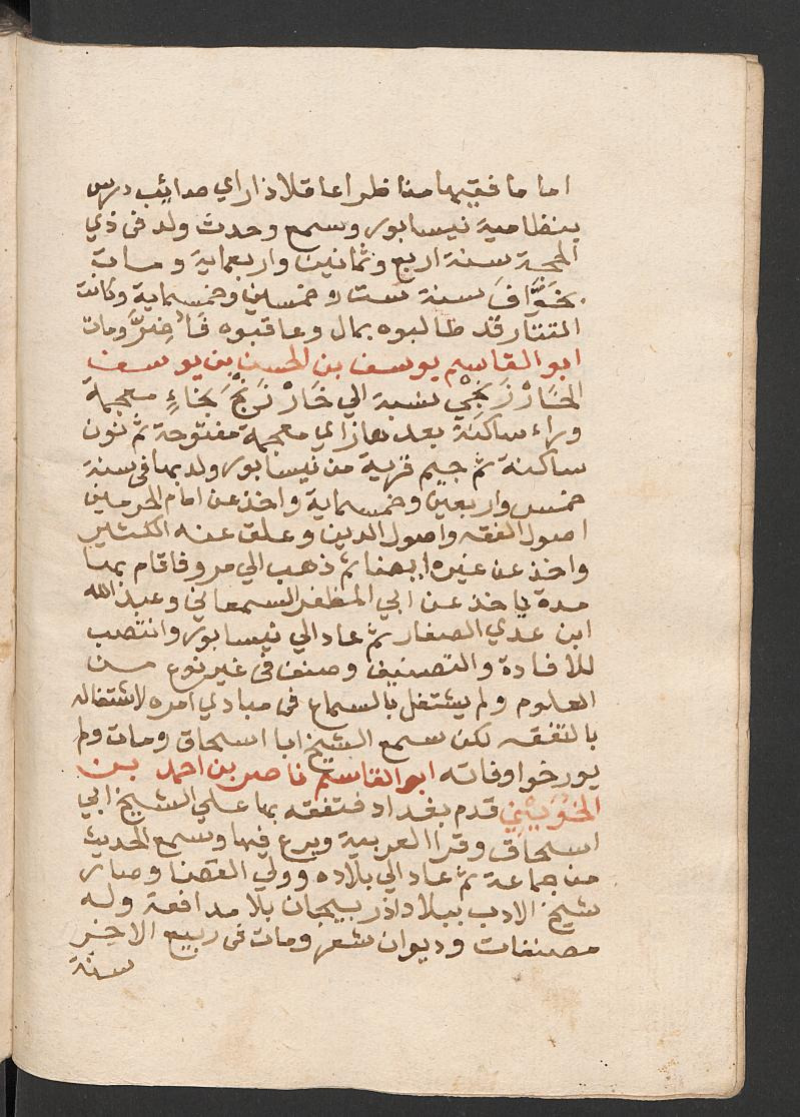 اماما فقيها مناظرا عاقلا ذا راي صائب درس
بنظامية نيسابور وسمع وحدث ولد في ذي
الحجة سنة اربع وثمانين واربعماية ومات
بخَوَّافَ سنة ست وخمسين وخمسماية وكانت
التتار قد طالبوه بمال وعاقبوه فَاُضِرَّ ومات
ابو القاسم يوسف بن الحسن بن يوسف
الخَارْزَنْجِي نسبة الي خَارْزَنْجَ بخاءٍ معجمة
وراء ساكنة بعدها زاي معجمة مفتوحة ثم نون
ساكنة ثم جيم قرية من نيسابور ولد بها في سنة
خمس واربعين وخمسماية واخذ عن امام الحرمين
اصول الفقه واصول الدين وعلق عنه الكثير
واخذ عن غيره ايضا ثم ذهب الي مرو فاقام بها
مدة ياخذ عن ابي المظفر السمعاني وعبد الله
ابن عدي الصفار ثم عاد الي نيسابور وانتصب
للافادة والتصنيف وصنف في غير نوع من
العلوم ولم يشتغل بالسماع في مبادي امره لاشتغاله
بالتفقه لكن سمع الشيخ ابا اسحاق ومات ولم
يورخوا وفاته ابو القاسم ناصر بن احمد بن
الخُوَيِّيني قدم بغداد فتفقه بها علي الشيخ ابي
اسحاق وقرا العربية وبرع فيها وسمع الحديث
من جماعة ثم عاد الي بلاده وولي القضا وصار
شيخ الادب ببلاد اذربيجان بلا مدافعة وله
مصنفات وديوان شعر ومات في ربيع الاخر
سنة